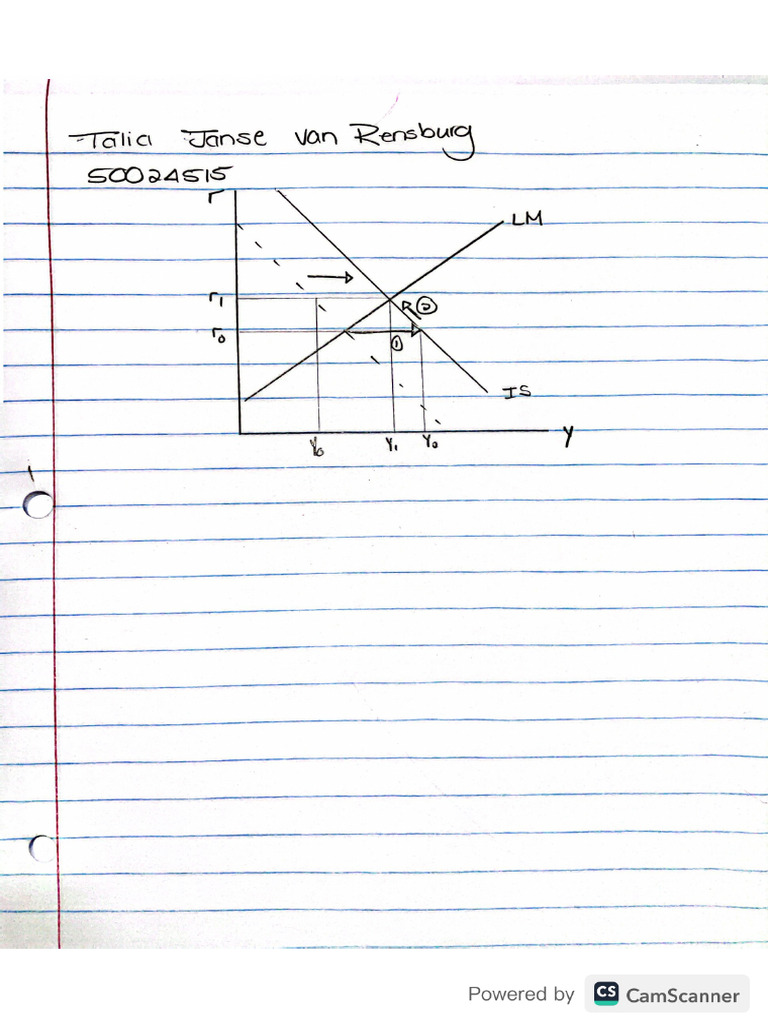 Talia Janse van Rensburg
50024515
r
LM
r1
②
r0
①
IS
Y0 Y1 Y0 Y
1
Powered by CS CamScanner